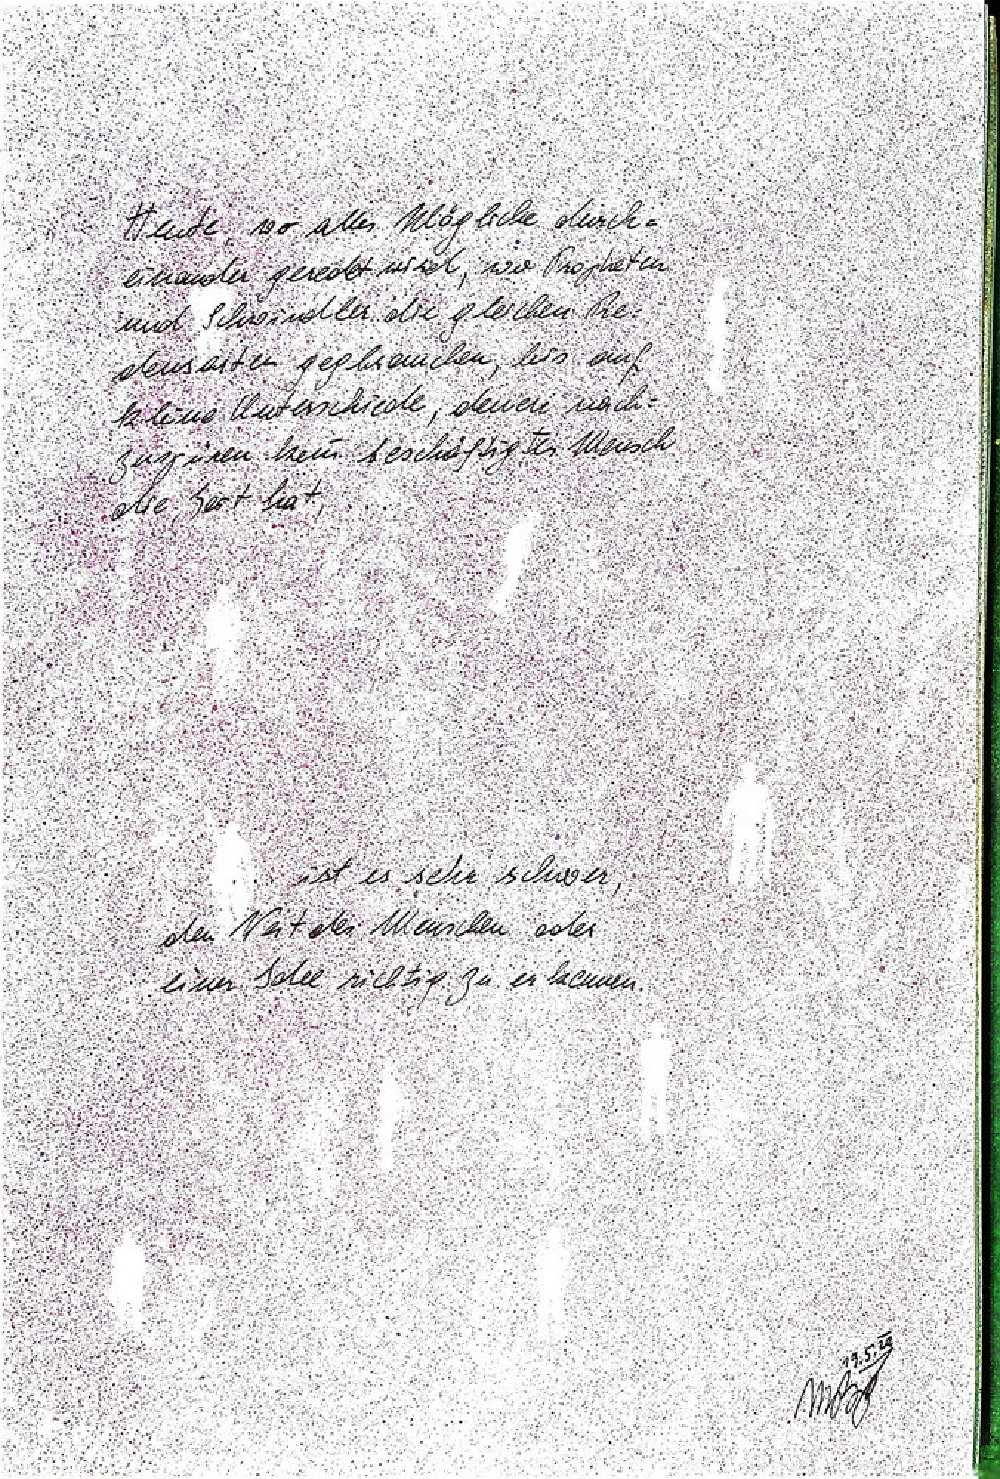 Heute, wo alles Mögliche durch=
einander geredet wird, wo Propheten
und Schwindler die gleichen Re=
densarten gegbrauchen, bis auf
kleine Unterschiede, denen nach=
zuspüren kein beschäftigter Mensch
die Zeit hat,
ist es sehr schwer,
den Wert des Menschen oder
einer Idee richtig zu erkennen.
19.5.